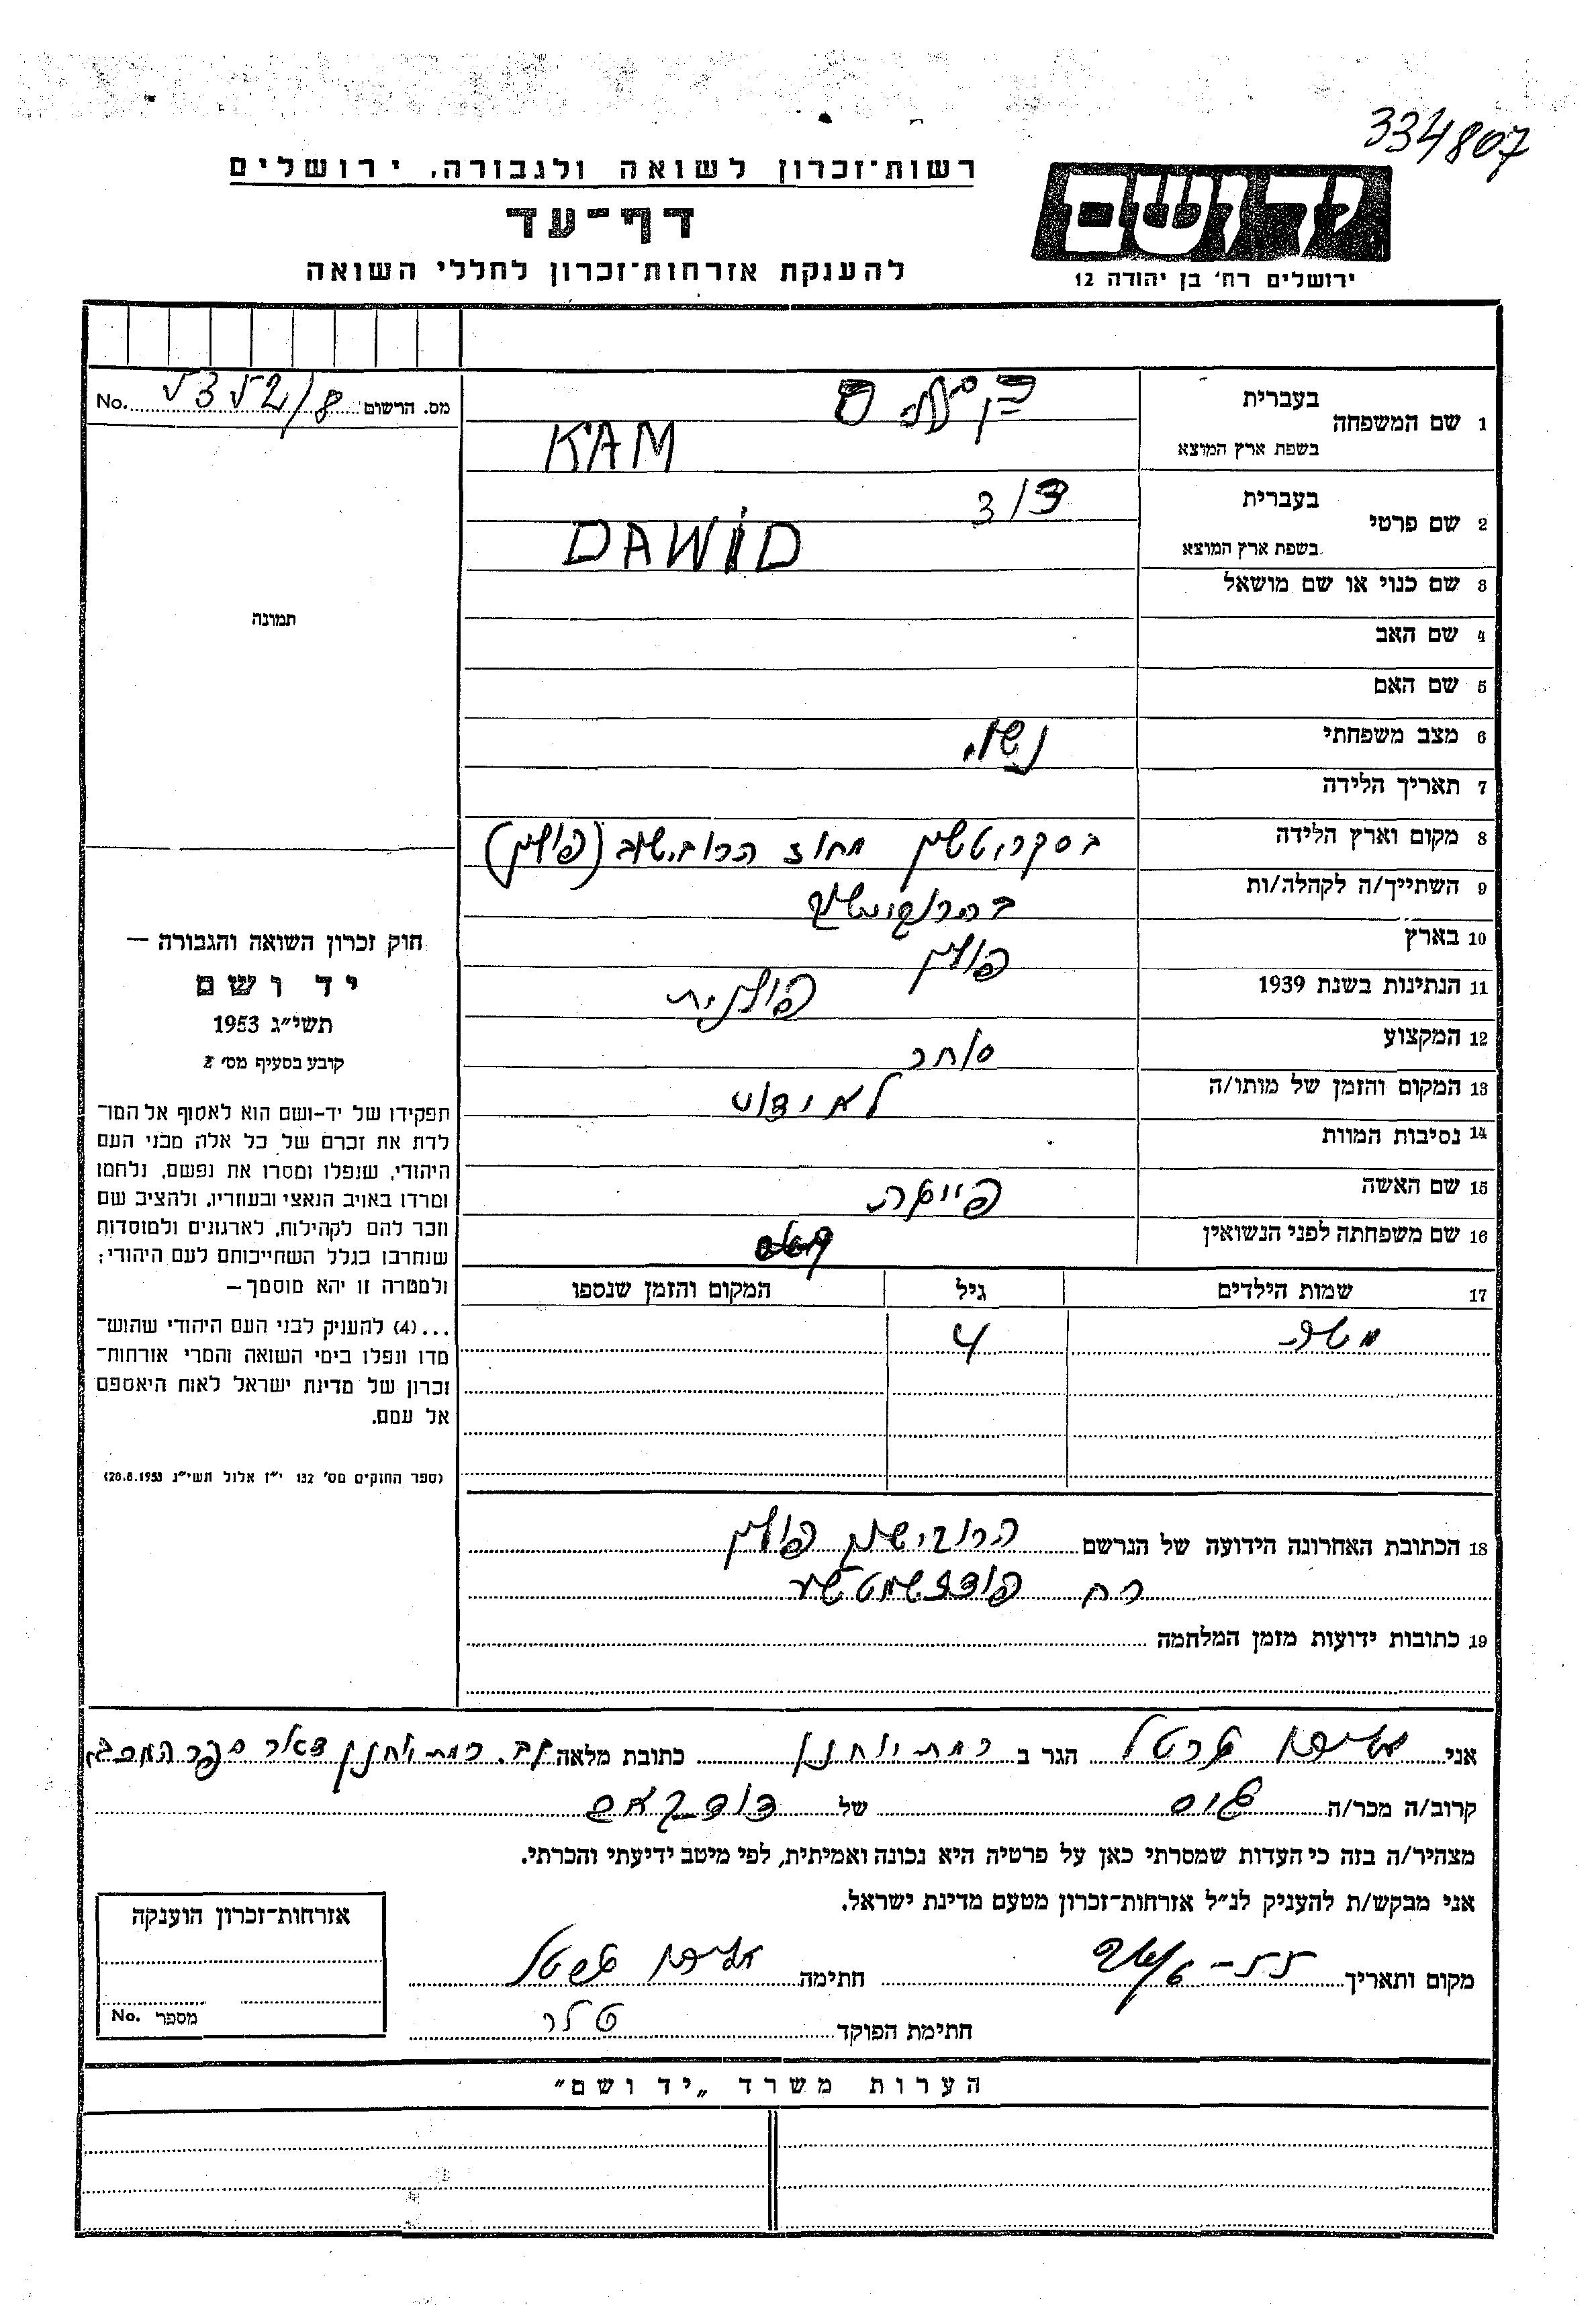 334807
רשות־זכרון לשואה ולגבורה, ירושלים
דף־עד
להענקת אזרחות־זכרון לחללי השואה
יד ושם
ירושלים רח' בן יהודה 12
מס. הרשום 5352/8 No.
1 שם המשפחה
בעברית
בשפת ארץ המוצא KAM
2 שם פרטי
בעברית דוד
בשפת ארץ המוצא DAWID
3 שם כנוי או שם מושאל
4 שם האב
5 שם האם
6 מצב משפחתי נשוי
7 תאריך הלידה
8 מקום וארץ הלידה מחוז הרובישוב (פולין)
9 השתייך/ה לקהלה/ות
10 בארץ פולין
11 הנתינות בשנת 1939 פולנית
12 המקצוע סוחר
13 המקום והזמן של מותו/ה לא ידוע
14 נסיבות המוות
15 שם האשה
16 שם משפחתה לפני הנשואין
17 שמות הילדים גיל המקום והזמן שנספו
משה 4
18 הכתובת האחרונה הידועה של הנרשם פולין
רח
19 כתובות ידועות מזמן המלחמה
תמונה
חוק זכרון השואה והגבורה —
יד ושם
תשי"ג 1953
קובע בסעיף מס' 2
תפקידו של יד-ושם הוא לאסוף אל המו־
לדת את זכרם של כל אלה מבני העם
היהודי, שנפלו ומסרו את נפשם, נלחמו
ומרדו באויב הנאצי ובעוזריו, ולהציב שם
וזכר להם לקהילות, לארגונים ולמוסדות
שנחרבו בגלל השתייכותם לעם היהודי;
ולמטרה זו יהא מוסמך —
...(4) להעניק לבני העם היהודי שהוש־
מדו ונפלו בימי השואה והמרי אזרחות־
זכרון של מדינת ישראל לאות היאספם
אל עמם.
(ספר החוקים מס' 132 י"ז אלול תשי"ג 28.8.1953)
אני הגר ב רמת יוחנן כתובת מלאה רמת יוחנן דאר כפר המכבי
קרוב/ה מכר/ה של דוד קאם
מצהיר/ה בזה כי העדות שמסרתי כאן על פרטיה היא נכונה ואמיתית, לפי מיטב ידיעתי והכרתי.
אני מבקש/ת להעניק לנ"ל אזרחות־זכרון מטעם מדינת ישראל.
מקום ותאריך חתימה
חתימת הפוקד
אזרחות־זכרון הוענקה
מספר No.
הערות משרד „יד ושם"